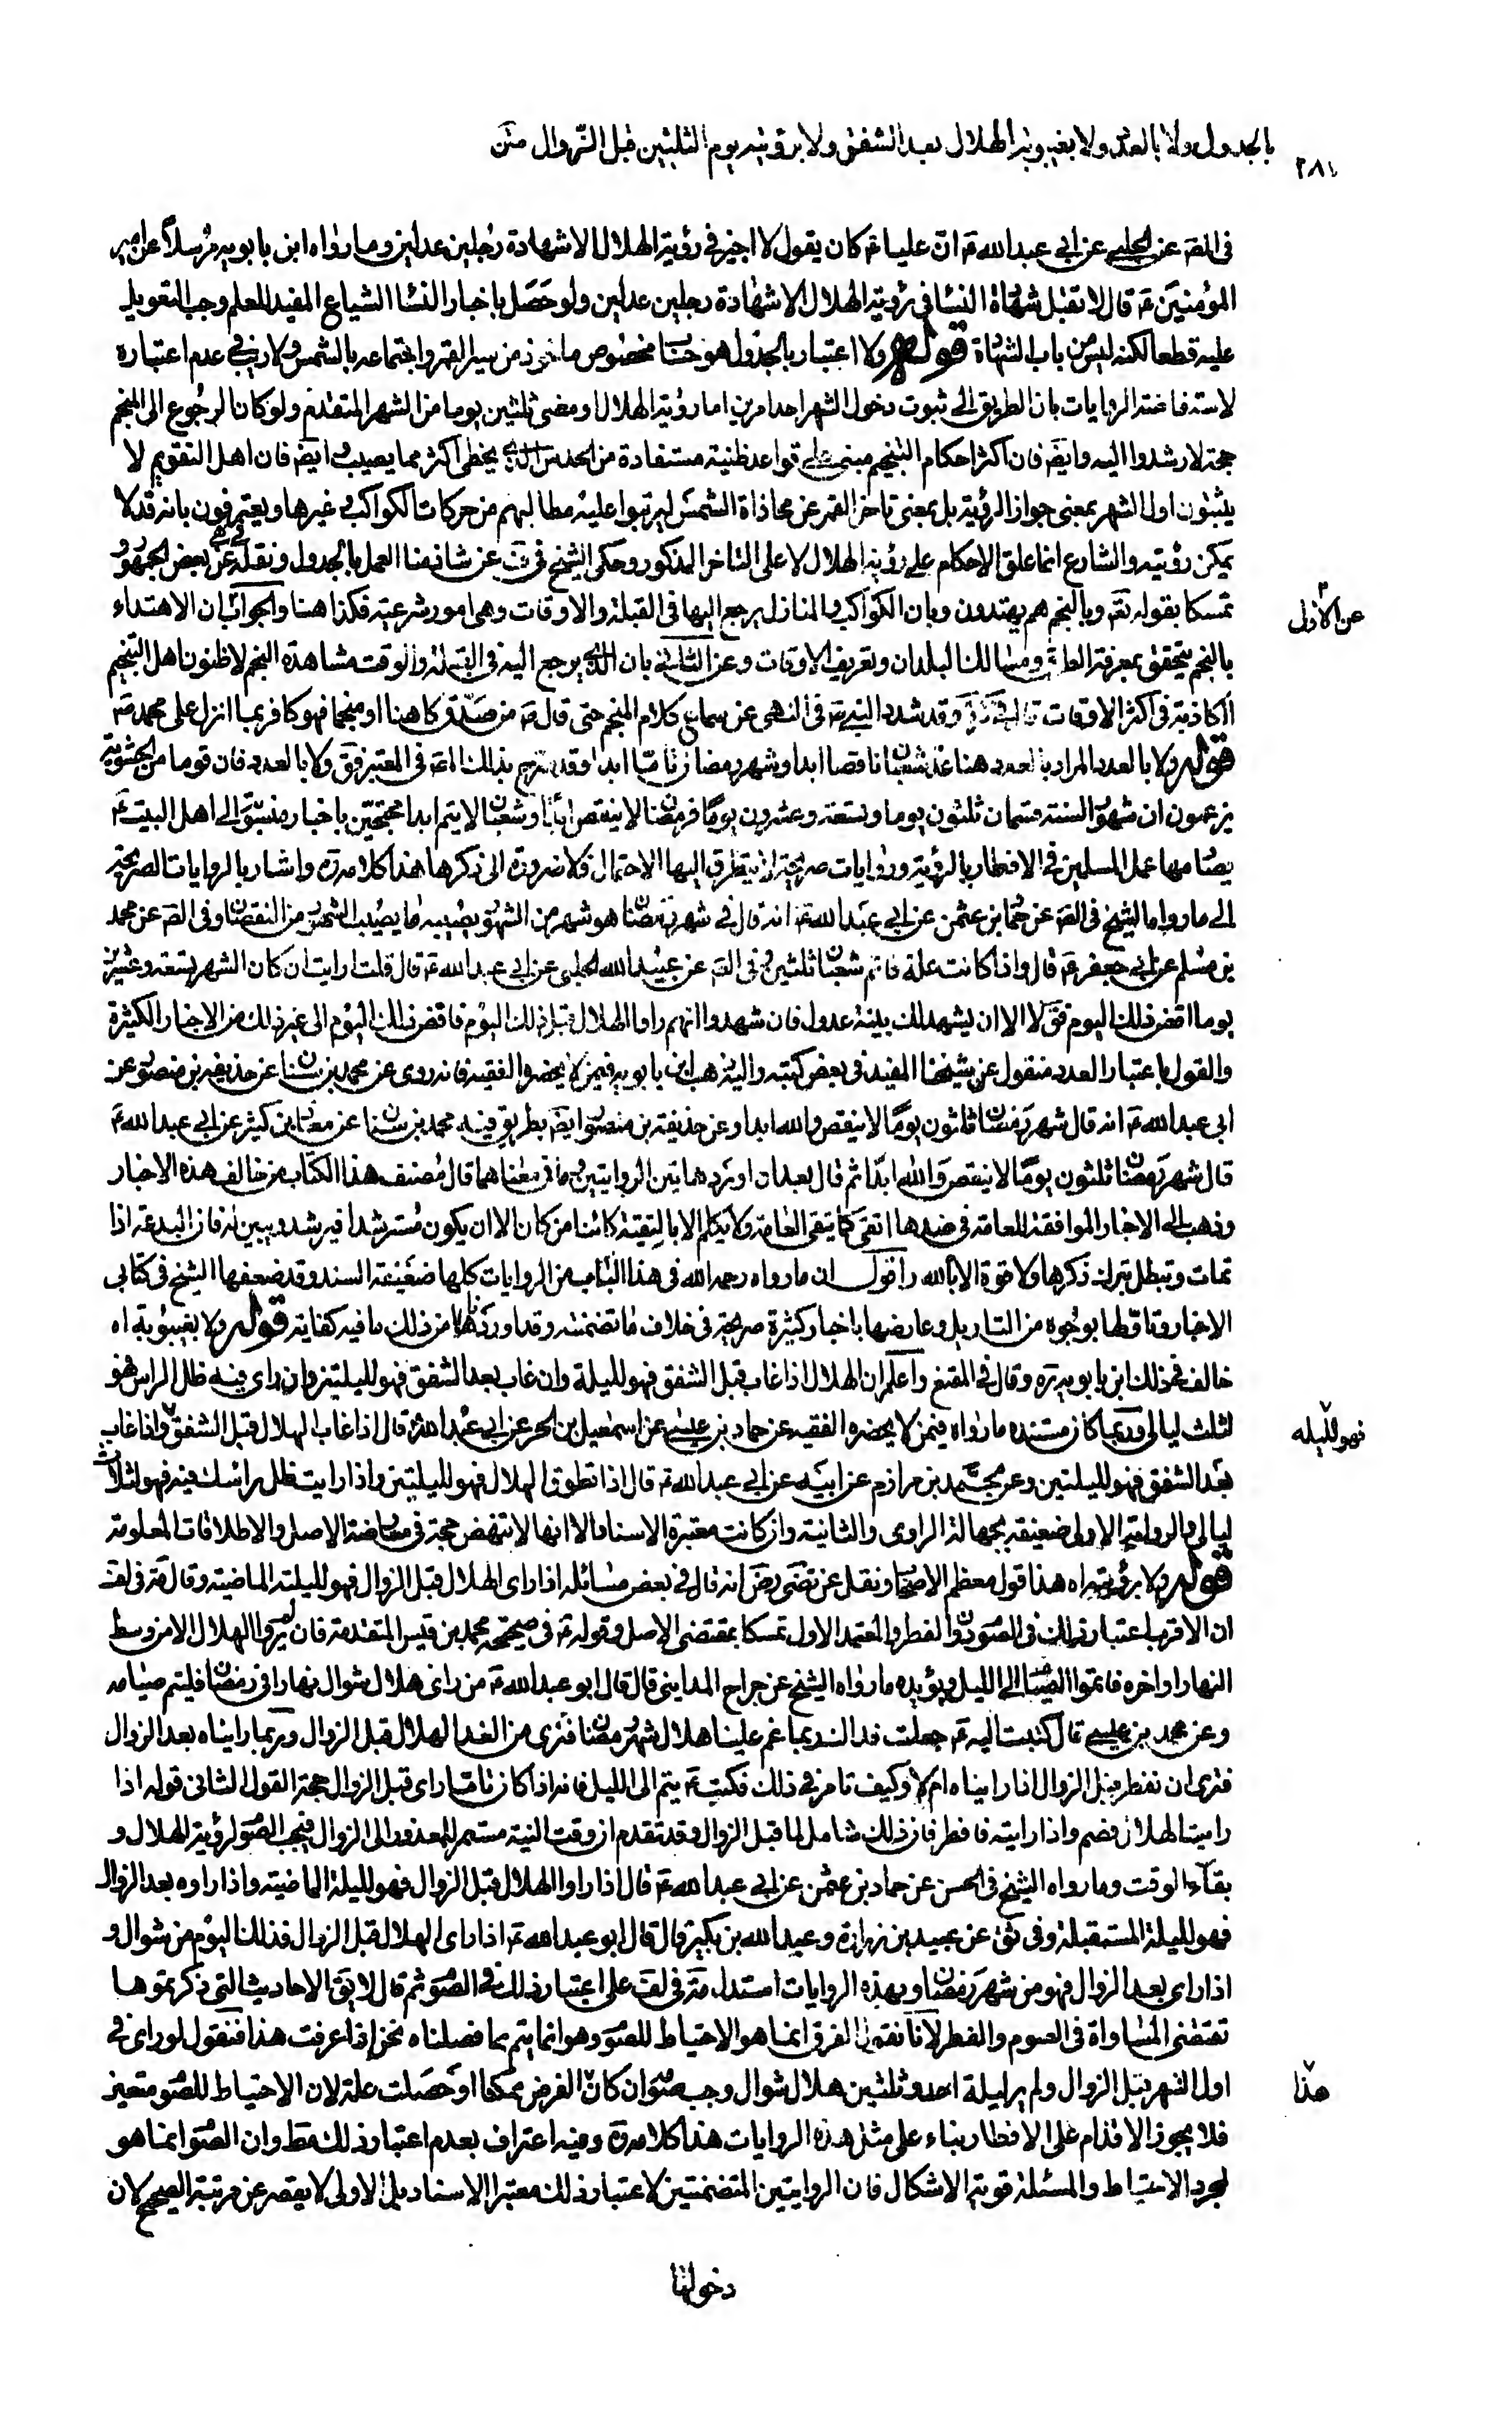 ٢٨١
بالجدول ولا بالعدد ولا بغيبوبة الهلال بعد الشفق ولا برؤيته يوم الثلثين قبل الزوال متن
فى الصّ عن الحلبي عن ابي عبد الله ع ان عليا ع كان يقول لا اجيز في رؤية الهلال الا شهادة رجلين عدلين وما رواه ابن بابويه مرسلا عن امير
المؤمنين ع قال لا تقبل شهادة النسا في رؤية الهلال الا شهادة رجلين عدلين ولو حصل باخبار النسا الشياع المفيد للعلم وجب التعويل
عليه قطعا لكنه ليس من باب الشهادة قوله ولا اعتبار بالجدول هو حساب مخصوص ماخوذ من سير القمر واجتماعه بالشمس ولا ريب في عدم اعتباره
لاستفاضة الروايات بان الطريق الى ثبوت دخول الشهر احد امرين اما رؤية الهلال او مضى ثلثين يوما من الشهر المتقدم ولو كان الرجوع الى المنجم
حجة لارشدوا اليه وايضم فان اكثر احكام التنجيم مبني على قواعد ظنية مستفادة من الحدس الذي يخطى اكثر مما يصيب وايضم فان اهل التقويم لا
يثبتون اول الشهر بمعنى جواز الرؤية بل بمعنى تاخر القمر عن محاذاة الشمس ليرتبوا عليه مطالبهم من حركات الكواكب وغيرها ويعترفون بانه قد لا
يمكن رؤيته والشارع انما علق الاحكام على رؤية الهلال لا على التاخر المذكور وحكى الشيخ في ف عن شاذ منا العمل بالجدول ونقله عن بعض الجمهور
تمسكا بقوله تع وبالنجم هم يهتدون وبان الكواكب والمنازل يرجع اليها في القبلة والاوقات وهى امور شرعية فكذا هنا والجواب ان الاهتداء
عن الاول
بالنجم يتحقق بمعرفة الطرق ومسالك البلدان وتعريف الاوقات وعن الثاني بان الذي يرجع اليه في القبلة والوقت مشاهدة النجم لا ظنون اهل التنجيم
الكاذبة في اكثر الاوقات قال وقد شدد النبي ص في النهى عن سماع كلام المنجم حتى قال ص من صدق كاهنا او منجما فهو كافر بما انزل على محمد ص
قوله ولا بالعدد المراد بالعدد هنا عد شعبان ناقصا ابدا وشهر رمضان تاما ابدا وقد صرح بذلك المص في المعتبر فق ولا بالعدد فان قوما من الحشوية
يزعمون ان شهور السنة قسمان ثلثون يوما وتسعة وعشرون يوما فرمضان لا ينقص ابدا وشعبان لا يتم ابدا محتجين باخبار منسوبة الى اهل البيت ع
يصادمها عمل المسلمين في الافطار بالرؤية وروايات صريحة لا يتطرق اليها الاحتمال فلا ضرورة الى ذكرها هذا كلامه ره واشار بالروايات الصريحة
الى ما رواه الشيخ في الصّ عن حماد بن عثمن عن ابي عبد الله ع انه قال في شهر رمضان هو شهر من الشهور يصيبه ما يصيب الشهور من النقصان وفى الصّ عن محمد
بن مسلم عن ابي جعفر ع قال واذا كانت علة فاتم شعبان ثلثين وفى الصّ عن عبيد الله الحلبي عن ابي عبد الله ع قال قلت ارايت ان كان الشهر تسعة وعشرين
يوما اقضى ذلك اليوم فق لا الا ان يشهد لك بينة عدول فان شهدوا انهم راوا الهلال قبل ذلك اليوم فاقض ذلك اليوم الى غير ذلك من الاخبار الكثيرة
والقول باعتبار العدد منقول عن شيخنا المفيد في بعض كتبه واليه ذهب ابن بابويه فيمن لا يحضره الفقيه فانه روى عن محمد بن سنان عن حذيفة بن منصور عن
ابي عبد الله ع انه قال شهر رمضان ثلثون يوما لا ينقص والله ابدا وعن حذيفة بن منصور ايضم بطريق فيه محمد بن سنان عن معاذ بن كثير عن ابي عبد الله ع
قال شهر رمضان ثلثون يوما لا ينقص والله ابدا ثم قال بعد ان اورد هاتين الروايتين وما في معناهما قال مصنف هذا الكتاب من خالف هذه الاخبار
وذهب الى الاخبار الموافقة للعامة في ضدها اتقى كما يتقى العامة ولا يكلم الا بالتقية كائنا من كان الا ان يكون مسترشدا فيرشد ويبين له فان البدعة اذا
تمات وتبطل بترك ذكرها ولا قوة الا بالله واقول ان ما رواه رحمه الله في هذا الباب من الروايات كلها ضعيفة السند وقد ضعفها الشيخ في كتابى
الاخبار وتاولها بوجوه من التاويل وعارضها باخبار كثيرة صريحة في خلاف ما تضمنته وقد اوردنا من ذلك ما فيه كفاية قوله ولا بغيبوبة اه
خالف في ذلك ابن بابويه ره وقال في المقنع واعلم ان الهلال اذا غاب قبل الشفق فهو لليلة وان غاب بعد الشفق فهو لليلتين وان راى فيه ظل الراس فهو
لثلث ليالي وربما كان مستنده ما رواه فيمن لا يحضره الفقيه عن حماد بن عيسى عن اسمعيل بن الحر عن ابي عبد الله ع قال اذا غاب الهلال قبل الشفق واذا غاب
فهو لليله
بعد الشفق فهو لليلتين وعن محمد بن مرازم عن ابيه عن ابي عبد الله ع قال اذا تطوق الهلال فهو لليلتين واذا رايت ظل راسك فيه فهو لثلاث
ليالي والرواية الاولى ضعيفة بجهالة الراوى والثانية وان كانت معتبرة الاسناد الا انها لا تنهض حجة في معارضة الاصل والاطلاقات المعلومة
قوله ولا برؤيته اه هذا قول معظم الاصحاب ونقل عن المرتضى رض انه قال في بعض مسائله اذا راى الهلال قبل الزوال فهو لليلته الماضية وقال مة في لف
ان الاقرب اعتبار ذلك في الصوم دون الفطر والمعتمد الاول تمسكا بمقتضى الاصل وقوله ع في صحيحة محمد بن قيس المتقدمة فان لم يروا الهلال الا من وسط
النهار او اخره فاتموا الصيام الى الليل ويؤيده ما رواه الشيخ عن جراح المدايني قال قال ابو عبد الله ع من راى هلال شوال نهارا في رمضان فليتم صيامه
وعن محمد بن عيسى قال كتبت اليه ع جعلت فداك ربما غم علينا هلال شهر رمضان فترى من الغد الهلال قبل الزوال وربما رايناه بعد الزوال
فترى ان نفطر قبل الزوال اذا رايناه ام لا وكيف تامر في ذلك فكتب ع يتم الى الليل فانه اذا كان تاما راى قبل الزوال حجة القول الثانى قوله اذا
رايت الهلال فصم واذا رايته فافطر فان ذلك شامل لما قبل الزوال وقد تقدم ان وقت النية مستمر للمعذور الى الزوال فيجب الصوم لرؤية الهلال و
بقاء الوقت وما رواه الشيخ في الحسن عن حماد بن عثمن عن ابي عبد الله ع قال اذا راوا الهلال قبل الزوال فهو لليلة الماضية واذا راوه بعد الزوال
فهو لليلة المستقبلة وفى ثق عن عبيد بن زرارة وعبد الله بن بكير قال قال ابو عبد الله ع اذا راى الهلال قبل الزوال فذلك اليوم من شوال و
اذا راى بعد الزوال فهو من شهر رمضان وبهذه الروايات استدل مة في لف على اعتبار ذلك في الصوم ثم قال لا يق الاحاديث التي ذكرتموها
تقتضى المساواة في الصوم والفطر لانا نقول الفرق انما هو الاحتياط للصوم وهو انما يتم بما فصلناه نحن اذا عرفت هذا فنقول لو راى في
اول الشهر قبل الزوال ولم ير ليلة احد وثلثين هلال شوال وجب صومه ان كان الفرض ممكنا او حصلت علة لان الاحتياط للصوم متعين
هذا
فلا يجوز الاقدام على الافطار بناء على مثل هذه الروايات هذا كلامه ره وفيه اعتراف بعدم اعتبار ذلك مط وان الصوم انما هو
لمجرد الاحتياط والمسئلة قوية الاشكال فان الروايتين المتضمنتين لاعتبار ذلك معتبرا الاسناد بل الاولى لا يقصر عن مرتبة الصحيح لان
دخولها